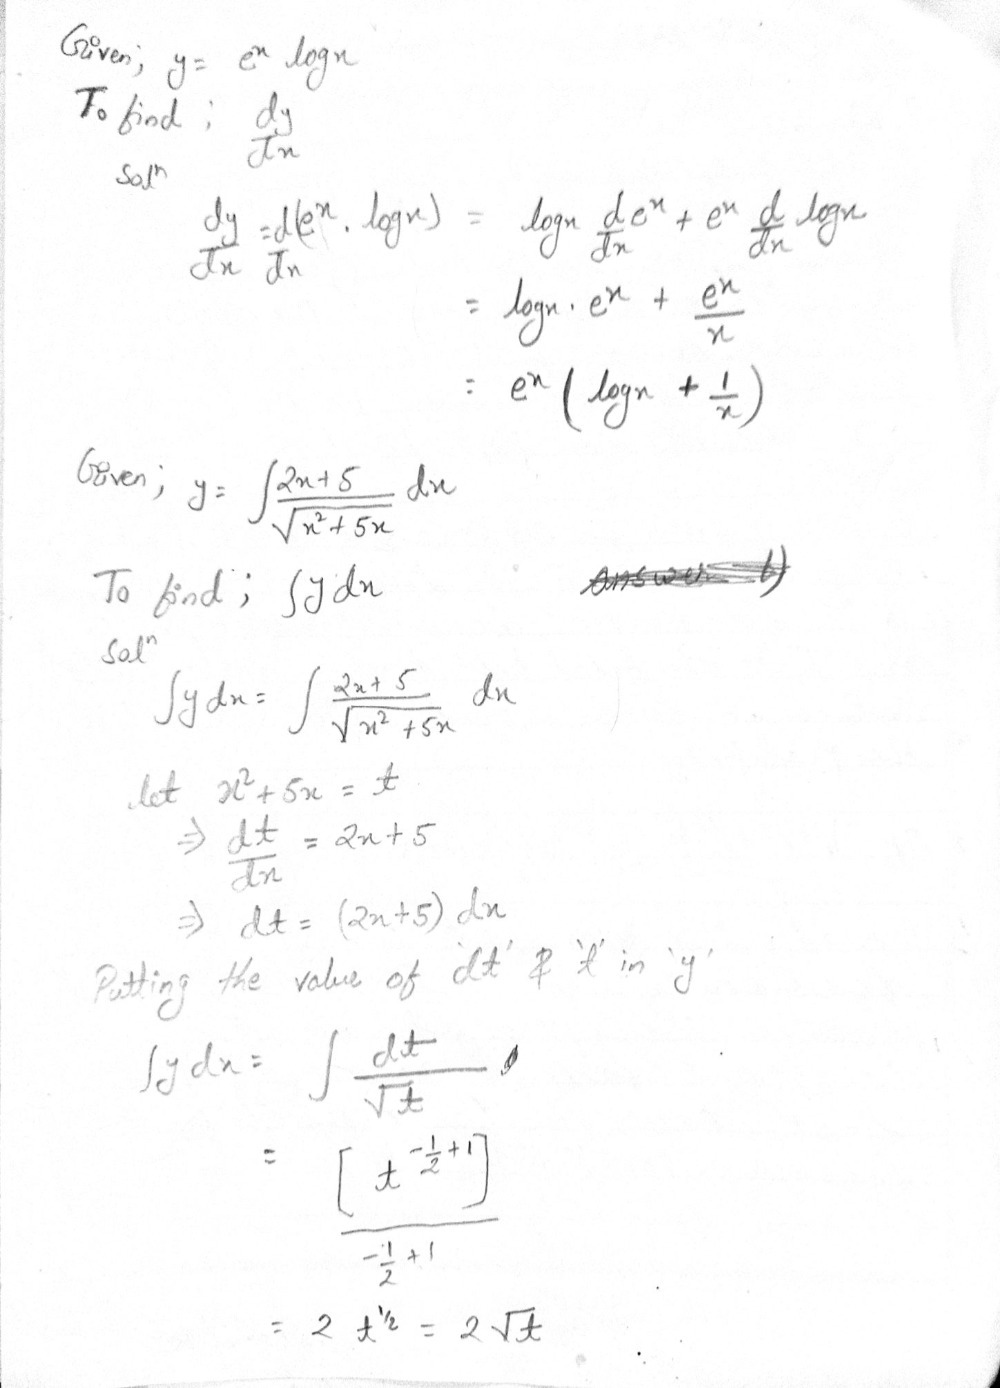 Given; y = e^x log x
To find; dy/dx
Sol^n
dy/dx = d/dx (e^x . log x) = log x d/dx e^x + e^x d/dx log x
= log x . e^x + e^x/x
= e^x (log x + 1/x)
Given; y = ∫ (2x+5)/√(x²+5x) dx
To find; ∫y dx
Sol^n
∫y dx = ∫ (2x+5)/√(x²+5x) dx
let x²+5x = t
⇒ dt/dx = 2x+5
⇒ dt = (2x+5) dx
Putting the value of 'dt' & 't' in 'y'
∫y dx = ∫ dt/√t
= [t^(-1/2+1)]/(-1/2+1)
= 2 t^(1/2) = 2√t